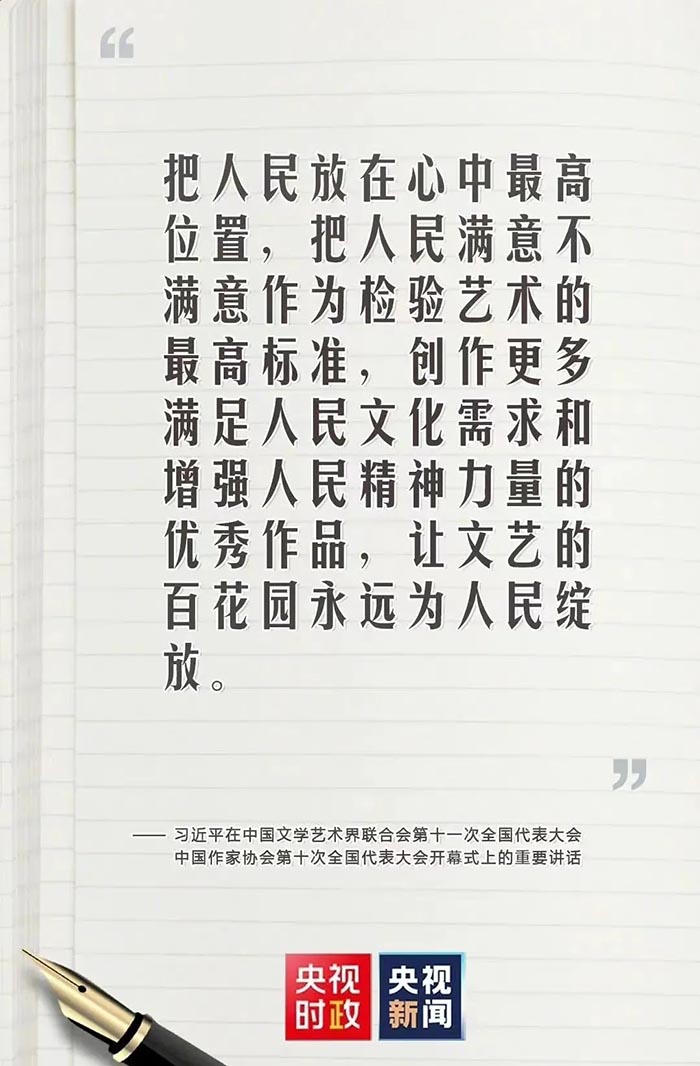 “
把人民放在心中最高
位置，把人民满意不
满意作为检验艺术的
最高标准，创作更多
满足人民文化需求和
增强人民精神力量的
优秀作品，让文艺的
百花园永远为人民绽
放。
”
—— 习近平在中国文学艺术界联合会第十一次全国代表大会
中国作家协会第十次全国代表大会开幕式上的重要讲话
央视
时政
央视
新闻